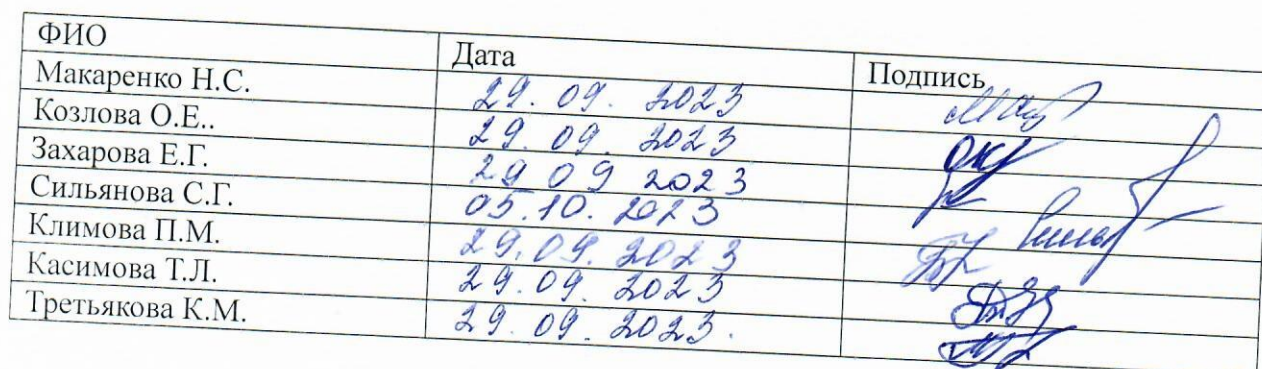 ФИО Дата Подпись
Макаренко Н.С. 29.09.2023
Козлова О.Е.. 29.09.2023
Захарова Е.Г. 29 09 2023
Сильянова С.Г. 05.10.2023
Климова П.М. 29.09.2023
Касимова Т.Л. 29.09.2023
Третьякова К.М. 29.09.2023.